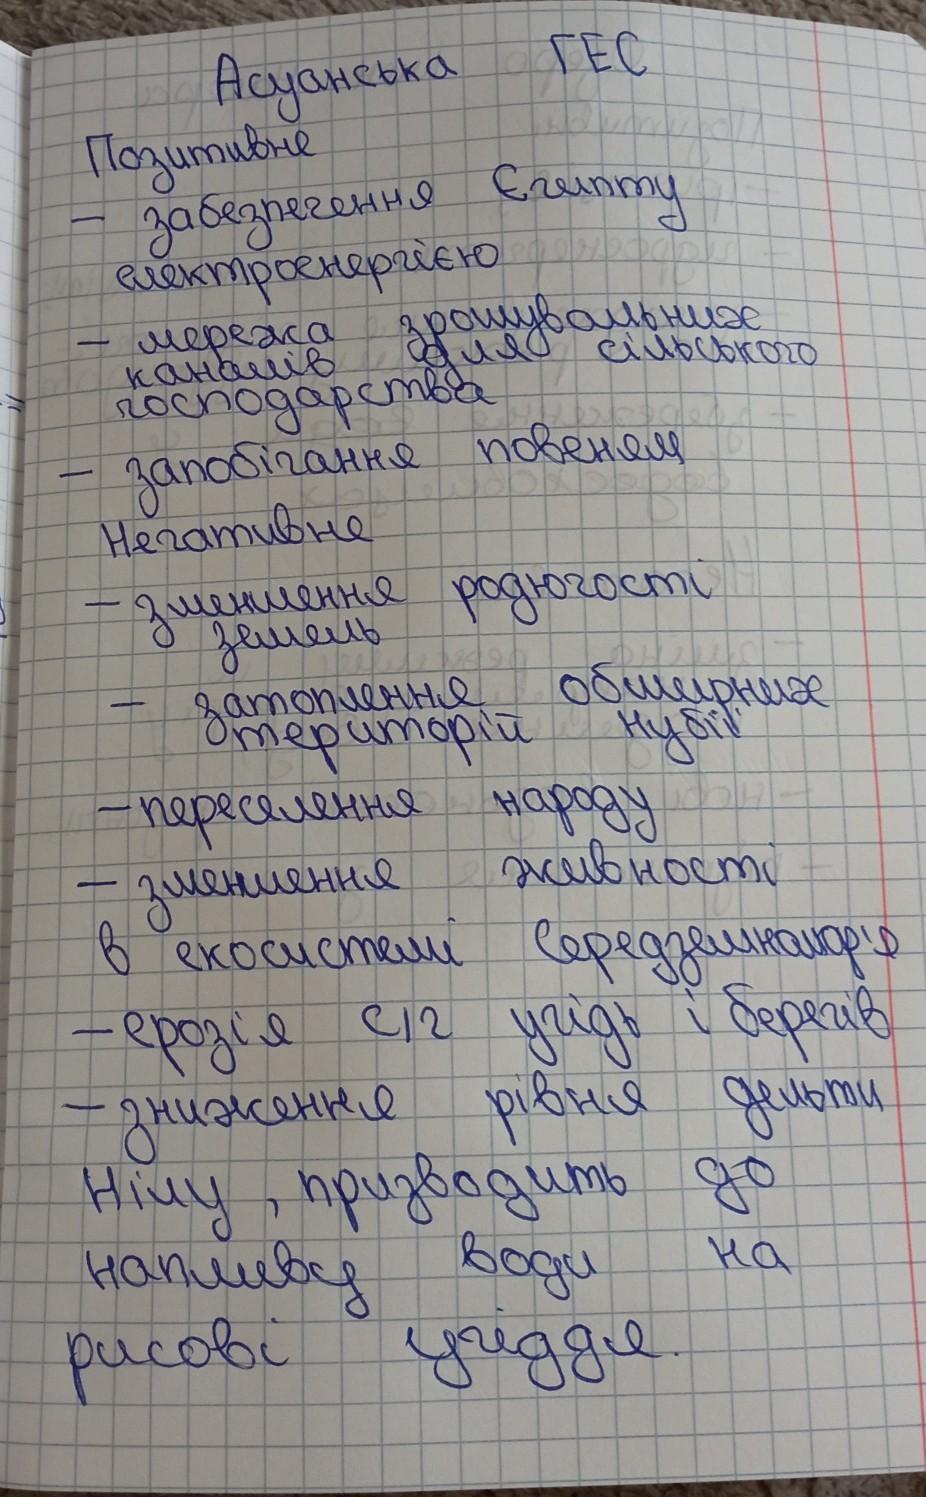 Асуанська ГЕС
Позитивне
- забезпечення Єгипту
електроенергією
- мережа зрошувальних
каналів для сільського
господарства
- запобігання повеням
Негативне
- зменшення родючості
земель
- затоплення обширних
територій Нубії
- переселення народу
- зменшення живності
в екосистемі Середземномор'я
- ерозія с/г угідь і берегів
- зниження рівня дельти
Нілу, призводить до
напливу води на
рисові угіддя.